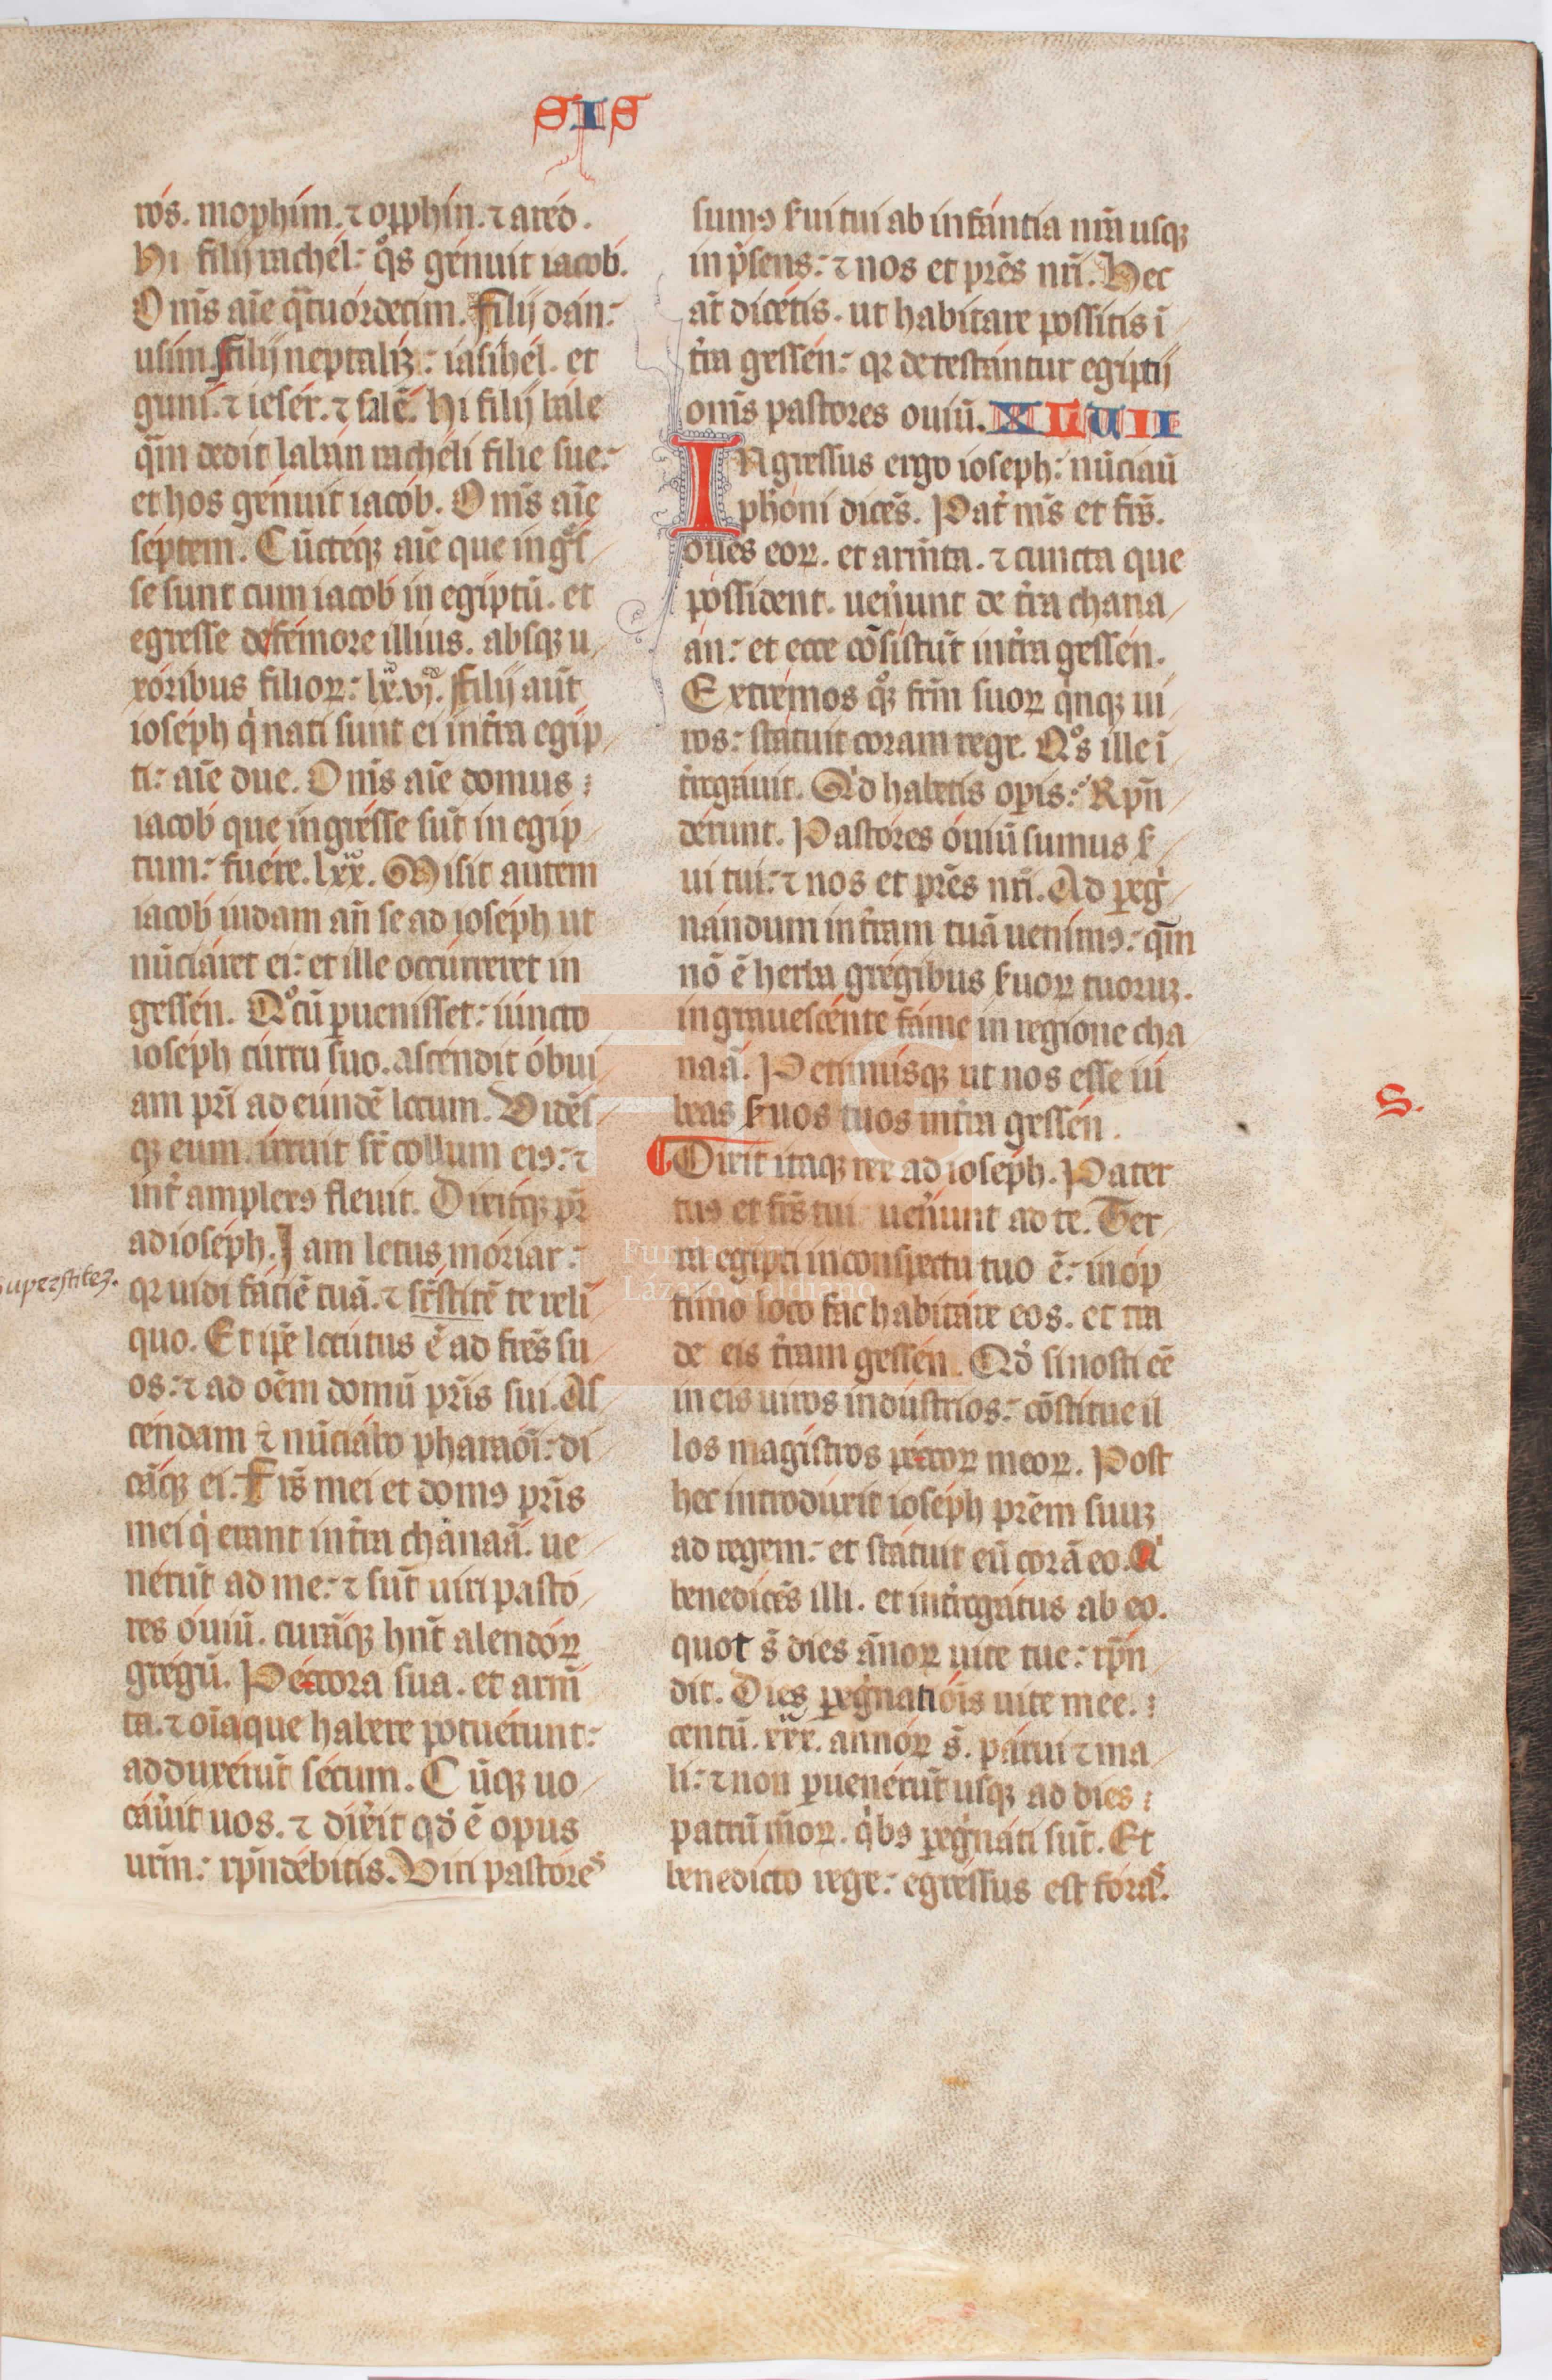 SIS
ros. mophim. ⁊ opphin. ⁊ ared.
Hi filij rachel: q̊s genuit iacob.
Om̄s aīe q̄tuordecim. Filij dan:
usim. Filij neptaliȝ: iasihel. et
guni. ⁊ ieser. ⁊ salē. Hi filij bale
q̄m dedit laban racheli filie sue:
et hos genuit iacob. Om̄s aīe
septem. Cūcteqȝ aīe que ing̊s
se sunt cum iacob in egiptū. et
egresse de femore illius. absqȝ u
xoribus filioꝝ: lx.vj. Filij aūt
ioseph q̇ nati sunt ei in tr̄a egip
ti: aīe due. Om̄s aīe domus
iacob que ingresse sūt in egip
tum: fuere. lxx. Misit autem
iacob iudam an̄ se ad ioseph ut
nūciaret ei: et ille occurreret in
gessen. Q̊ cū ꝑuenisset: iuncto
ioseph curru suo. ascendit obui
am pr̄i ad eundē locum. Vidēs
qȝ eum. irruit sr̄ collum eiꝰ: ⁊
int̄ amplexꝰ fleuit. Dixitqȝ pr̄
ad ioseph. Iam letus moriar:
qꝛ uidi faciē tuā. ⁊ sr̄stitē te reli
superstitez.
quo. Et ip̄e locutus ē ad fr̄es su
os: ⁊ ad oēm domū pr̄is sui. As
cendam ⁊ nūciabo pharaoī: di
cāqȝ ei. Fr̄s mei et domꝰ pr̄is
mei q̇ erant in tr̄a chanaā. ue
nerūt ad me: ⁊ sūt uiri pasto
res ouiū. curāqȝ hn̄t alendoꝝ
gregū. Peccora sua. et arm̄
ta. ⁊ oīa que habere potuerunt:
adduxerūt secum. Cūqȝ uo
cauit uos. ⁊ dixit qd̄ ē opus
ur̄m: rpn̄debitis. Viri pastores
sumꝰ ẜui tui ab infantia nr̄a usqȝ
in p̄sens: ⁊ nos et pr̄es nr̄i. Hec
āt dicetis. ut habitare possitis ī
tr̄a gessen: qꝛ detestantur egiptij
om̄s pastores ouiū. XLVII
Ingressus ergo ioseph: nūciaū
ph̄oni dicēs. Pat̄ m̄s et fr̄s.
oues eoꝝ. et arm̄ta. ⁊ cuncta que
possident. uen̄unt de tr̄a chana
an: et ecce cōsistūt in tr̄a gessen.
Extremos qȝ̊ fr̄m suoꝝ q̇nqȝ ui
ros: statuit coram rege. Q̊s ille ī
tr̄rgauit. Qd̄ habetis opis: Rpn̄
derunt. Pastores ouiū sumus ẜ
ui tui: ⁊ nos et pr̄es nr̄i. Ad ꝑeġ
nandum in tr̄am tuā uenimꝰ: q̄m
nō ē herba gregibus ẜuoꝝ tuoruȝ.
ingrauescente fame in regione cha
naā. Petimusqȝ ut nos esse iu
beas ẜuos tuos in tr̄a gessen.
Dixit itaqȝ rex ad ioseph. Pater
tuꝰ et fr̄s tui uen̄unt ad te. Ter
ra egipti in conspectu tuo ē: in op
timo loco fac habitare eos. et tra
de eis tr̄am gessen. Qd̄ si nosti eē
in eis uiros industrios: cōstitue il
los magistros peccoꝝ meoꝝ. Post
hec introduxit ioseph pr̄em suuȝ
ad regem: et statuit eū corā eo. Q̇
benedicēs illi. et int̄rgatus ab eo.
quot s̄ dies ānoꝝ uite tue: rpn̄
dit. Dies ꝑeġnatiōis uite mee.
centū. xxx. annoꝝ s̄. parui ⁊ ma
li: ⁊ non ꝑuenerūt usqȝ ad dies
patrū m̄oꝝ. q̇bꝰ ꝑeġnati sūt. Et
benedicto rege: egressus est foras.
S.
Fundación
Lázaro Galdiano